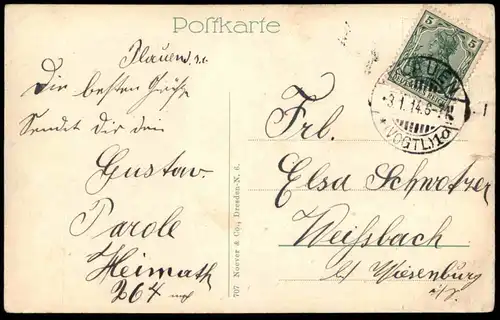 Postkarte
Plauen
Die besten Grüße
Sendet Dir dein
Gustav.
Parole
Heimath
264
707 Noever & Co., Dresden-N. 6.
5
5
PLAUEN
3.1.14.6-7
(VOGTL)1
Frl.
Elsa Schwotzer
Weißbach
b/ Wiesenburg
i/S.